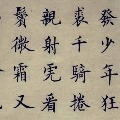 發少年狂
裘千騎捲
親射虎看
鬢微霜又